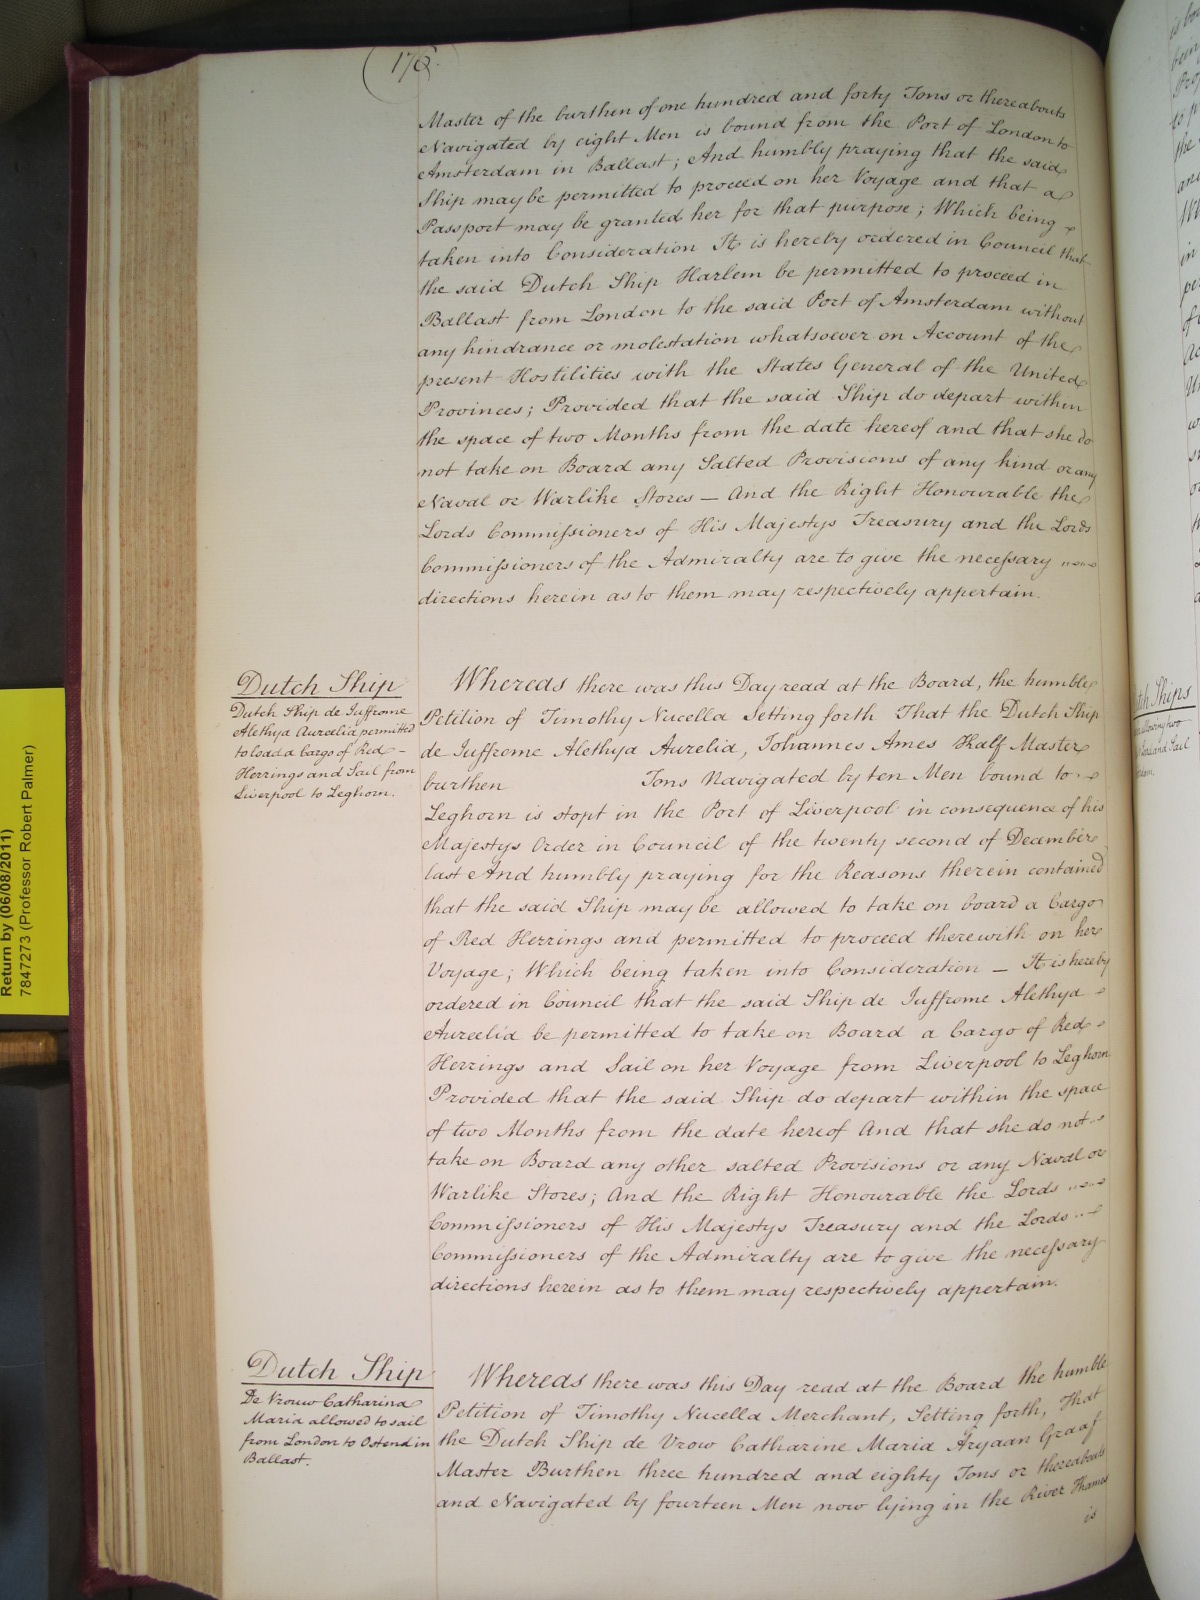 176.
Master of the burthen of one hundred and forty Tons or thereabouts
Navigated by eight Men is bound from the Port of London to
Amsterdam in Ballast; And humbly praying that the said
Ship may be permitted to proceed on her Voyage and that a
Passport may be granted her for that purpose; Which being
taken into Consideration It is hereby ordered in Council that
the said Dutch Ship Harlem be permitted to proceed in
Ballast from London to the said Port of Amsterdam without
any hindrance or molestation whatsoever on Account of the
present Hostilities with the States General of the United
Provinces; Provided that the said Ship do depart within
the space of two Months from the date hereof and that she do
not take on Board any Salted Provisions of any kind or any
Naval or Warlike Stores — And the Right Honourable the
Lords Commissioners of His Majestys Treasury and the Lords
Commissioners of the Admiralty are to give the necessary
directions herein as to them may respectively appertain.
Dutch Ship
Dutch Ship de Juffrome
Alethya Auraelia permitted
to load a Cargo of Red -
Herrings and Sail from
Liverpool to Leghorn.
Whereas there was this Day read at the Board, the humble
Petition of Timothy Nucella Setting forth That the Dutch Ship
de Juffrome Alethya Aurelia, Johannes Ames Half Master
burthen Tons Navigated by ten Men bound to
Leghorn is stopt in the Port of Liverpool in consequence of his
Majestys Order in Council of the twenty second of December
last And humbly praying for the Reasons therein contained
that the said Ship may be allowed to take on board a Cargo
of Red Herrings and permitted to proceed therewith on her
Voyage; Which being taken into Consideration — It is hereby
ordered in Council that the said Ship de Juffrome Alethya
Aureelia be permitted to take on Board a Cargo of Red
Herrings and Sail on her Voyage from Liverpool to Leghorn
Provided that the said Ship do depart within the space
of two Months from the date hereof And that she do not
take on Board any other salted Provisions or any Naval or
Warlike Stores; And the Right Honourable the Lords
Commissioners of His Majestys Treasury and the Lords
Commissioners of the Admiralty are to give the necessary
directions herein as to them may respectively appertain.
Dutch Ship
De Vrouw Catharina
Maria allowed to sail
from London to Ostend in
Ballast.
Whereas there was this Day read at the Board the humble
Petition of Timothy Nucella Merchant, Setting forth, That
the Dutch Ship de Vrow Catharine Maria Aryaan Graaf
Master Burthen three hundred and eighty Tons or thereabouts
and Navigated by fourteen Men now lying in the River Thames
is
Return by (06/08/2011)
7847273 (Professor Robert Palmer)
Ships